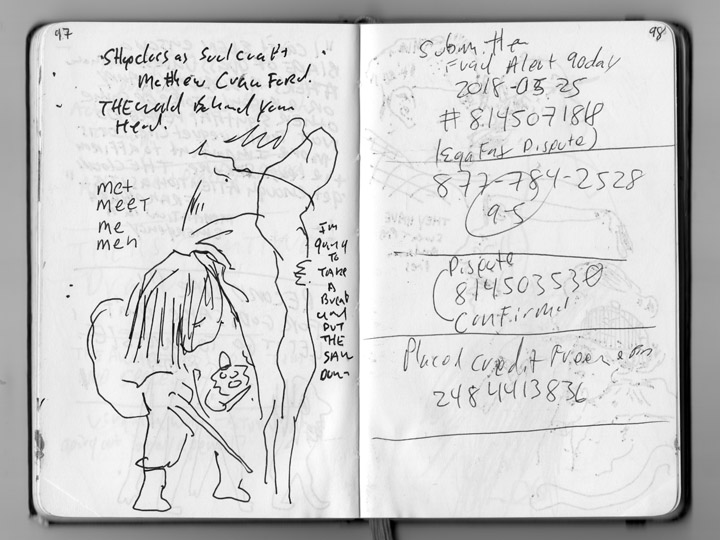 97
Shopclass as Soulcraft
Matthew Crawford.
THE world Behind your
Head.
met
MEET
me
men
I'm
going
TO
TAKE
A
Break
and
PUT
THE
SAW
Down
98
Submitted
Fraud Alert 90day
2018-05 25
# 814507188
(EquaFax Dispute)
877-784-2528
9-5
Dispute
814503530
Confirmed
Placed Credit Freeze on
2484413836